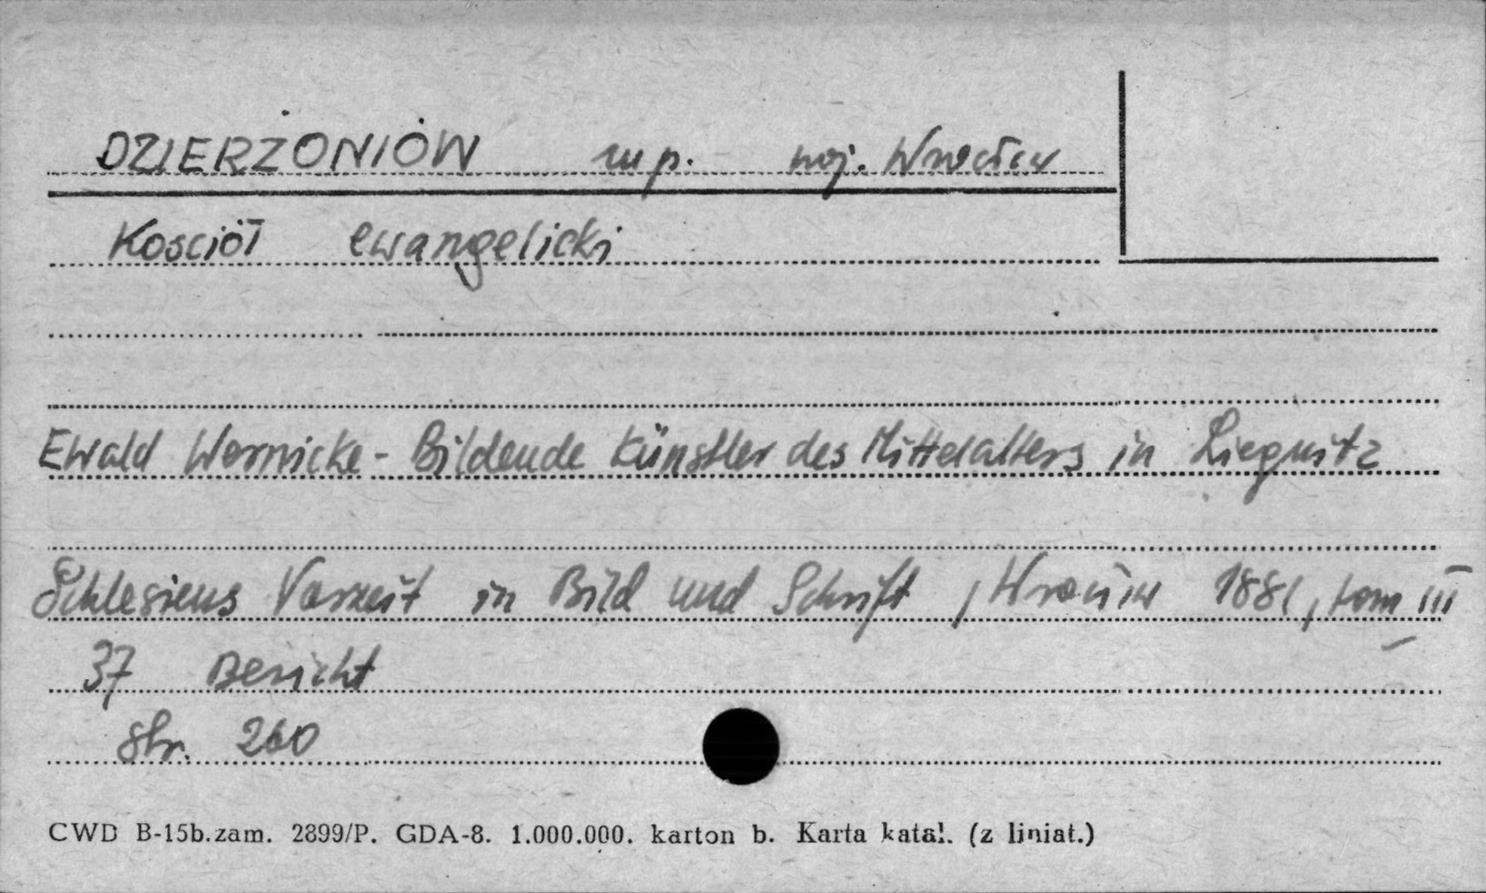 DZIERŻONIÓW m p. woj. Wrocław
Kościół ewangelicki
Ewald Wernicke - Bildende Künstler des Mittelalters in Liegnitz
Schlesiens Vorzeit in Bild und Schrift, Wrocław 1881, tom III
37 Bericht
str. 260
CWD B-15b.zam. 2899/P. GDA-8. 1.000.000. karton b. Karta katal. (z liniat.)